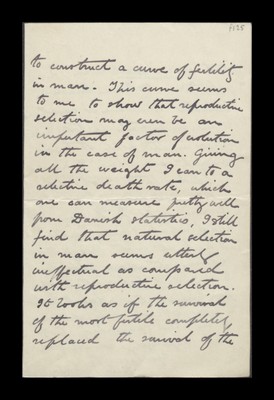 to construct a curve of fertility
in man. This curve seems
to me to show that reproductive
selection may even be an
important factor of evolution
in the case of man. Giving
all the weight I can to a
selective death rate, which
one can measure pretty well
from Danish statistics, I still
find that natural selection
in man seems utterly
ineffectual as compared
with reproductive selection.
It looks as if the survival
of the most fertile completely
replaced the survival of the